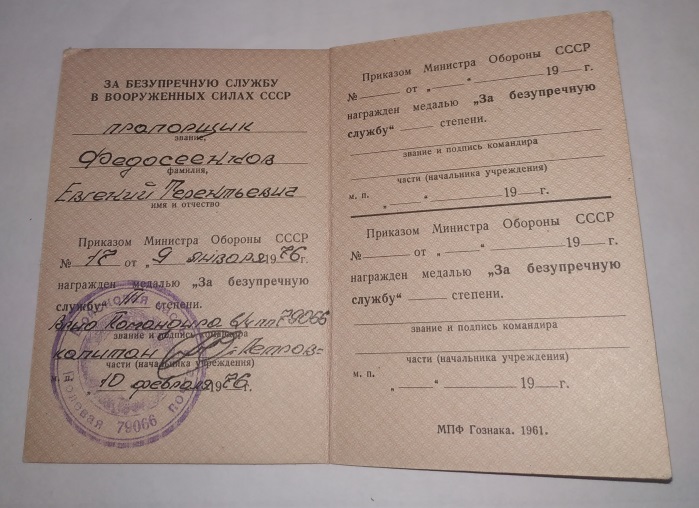 ЗА БЕЗУПРЕЧНУЮ СЛУЖБУ
В ВООРУЖЕННЫХ СИЛАХ СССР
прапорщик
звание,
Федосеенков
фамилия,
Евгений Терентьевич
имя и отчество
Приказом Министра Обороны СССР
№ 17 от „ 9 января 1976г.
награжден медалью „За безупречную
службу“ III степени.
Врио Командира в/ч пп 79066
звание и подпись командира
капитан Петров
части (начальника учреждения)
м. „ 10 февраля 1976г.
79066
Приказом Министра Обороны СССР
№ от „ “ 19 г.
награжден медалью „За безупречную
службу“ степени.
звание и подпись командира
части (начальника учреждения)
м. п. „ “ 19 г.
Приказом Министра Обороны СССР
№ от „ “ 19 г.
награжден медалью „За безупречную
службу“ степени.
звание и подпись командира
части (начальника учреждения)
м. п. „ “ 19 г.
МПФ Гознака. 1961.